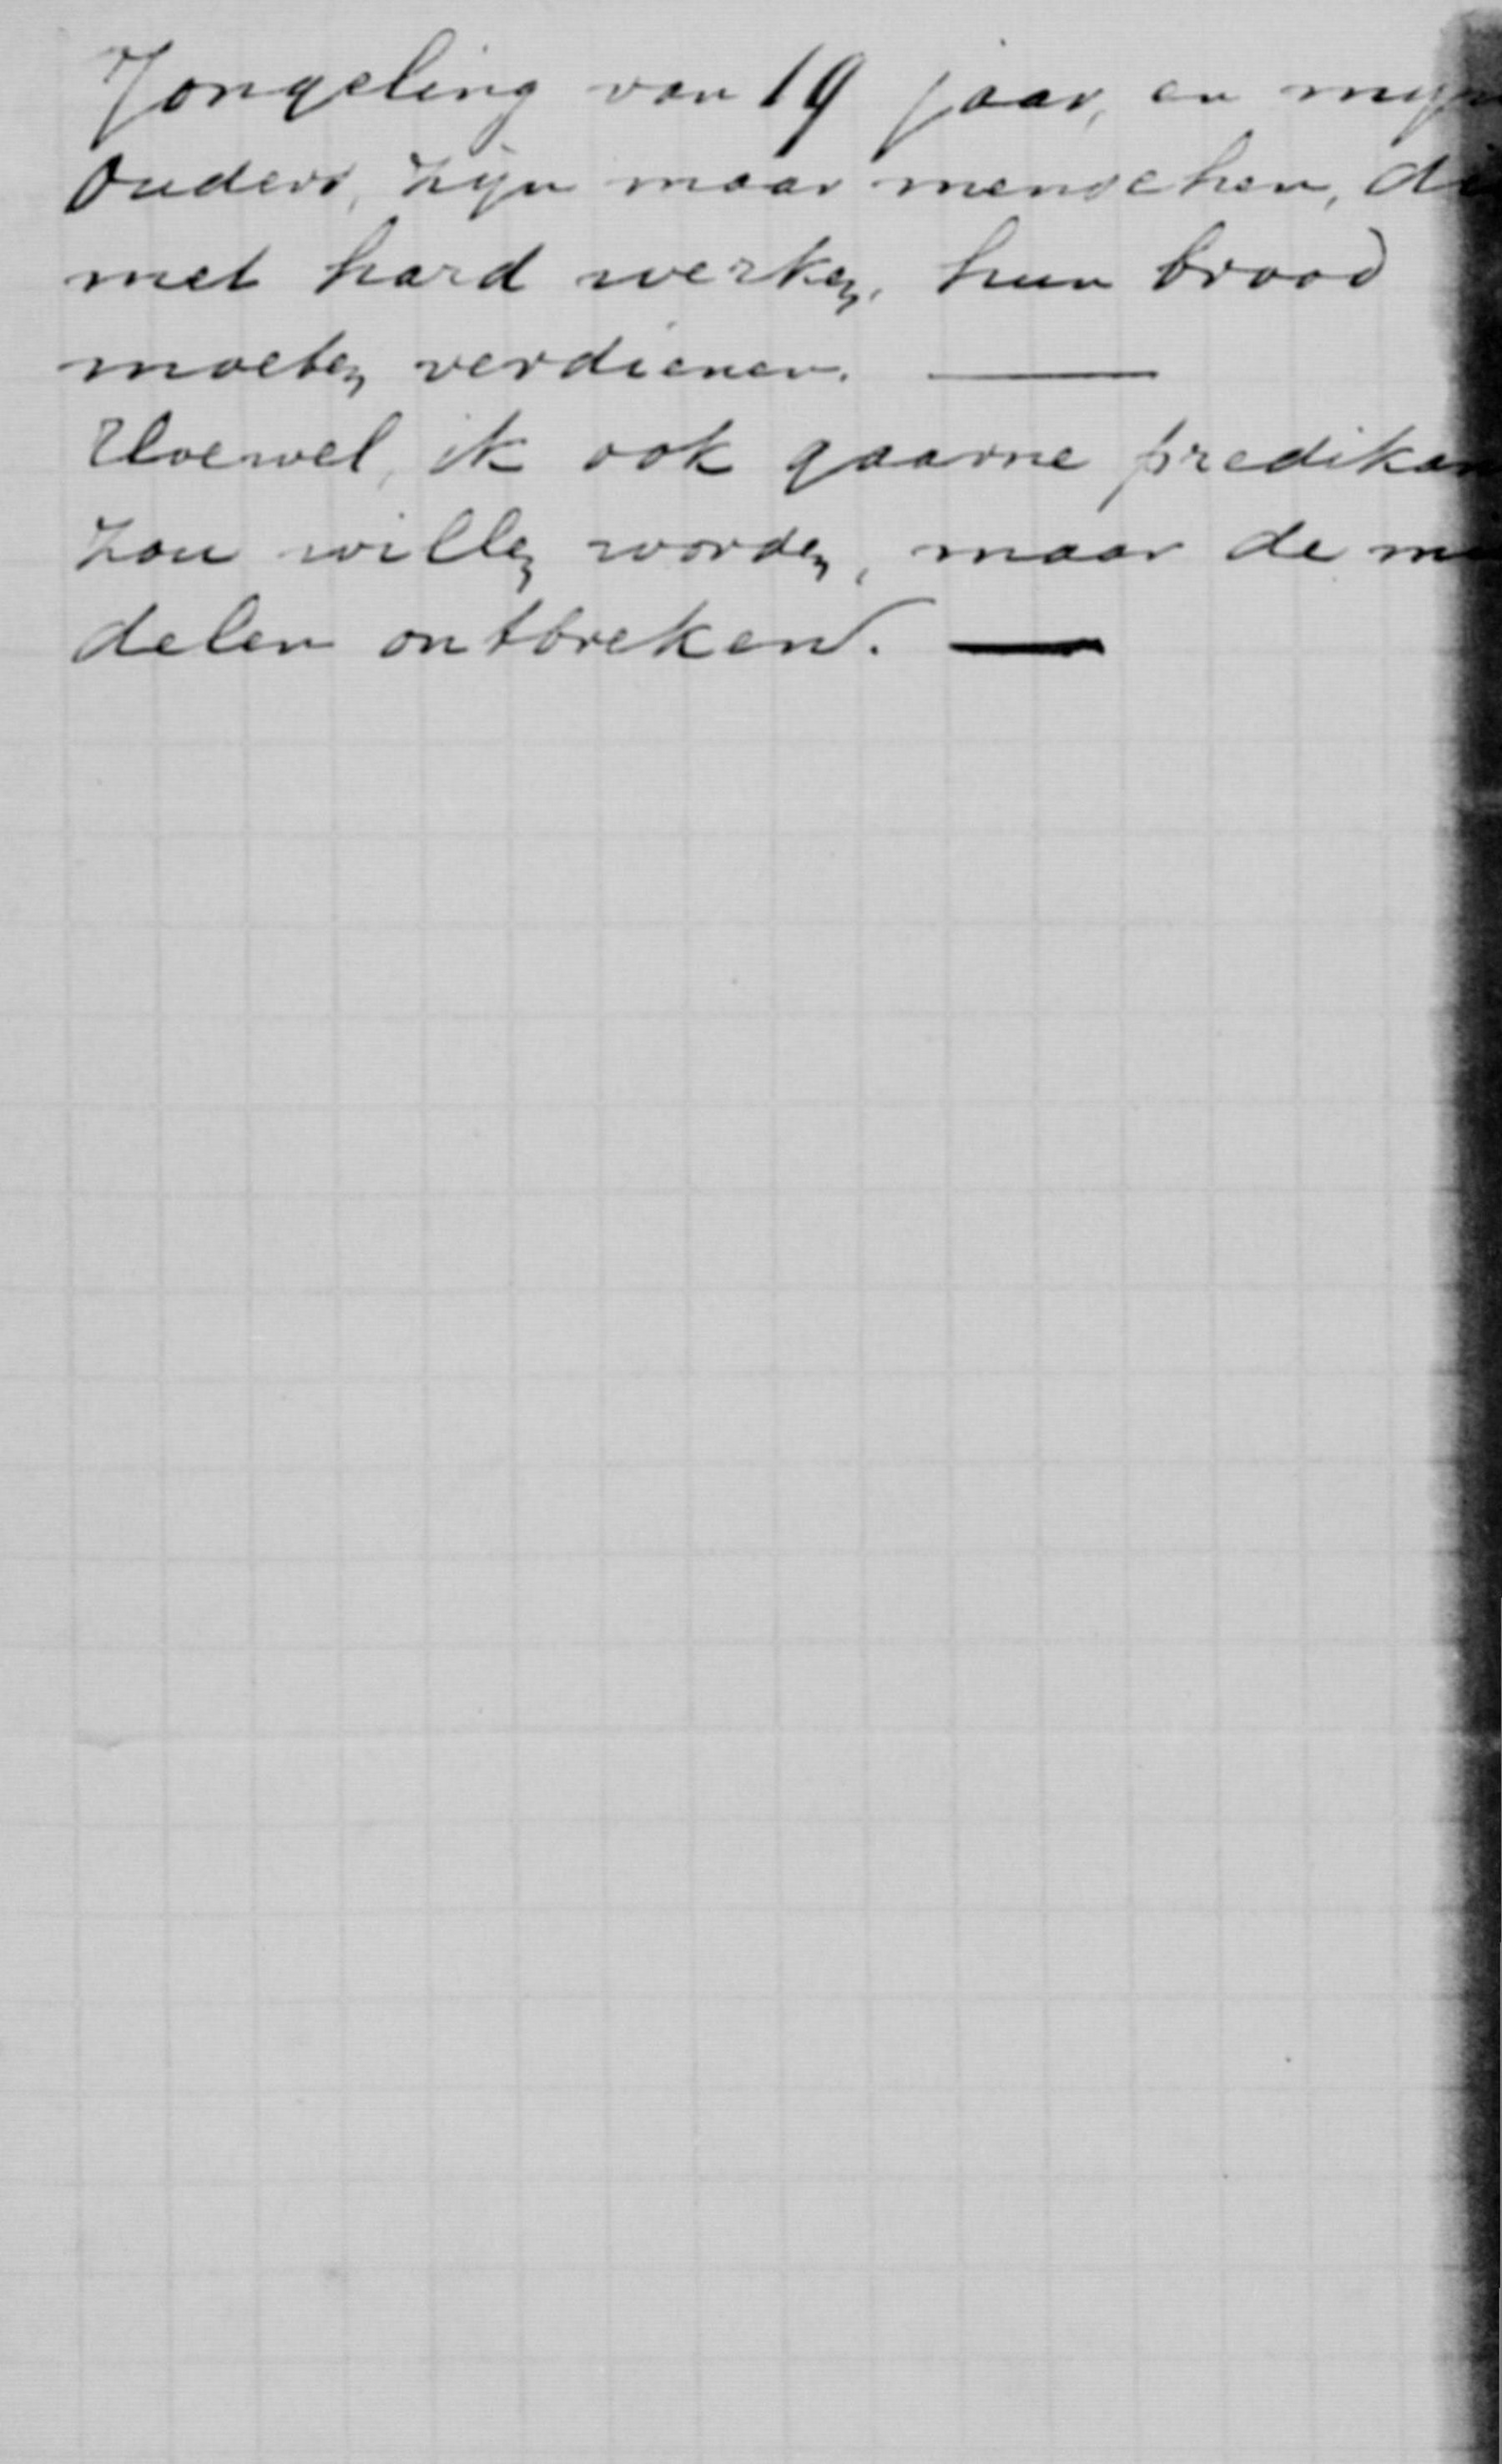 Jongeling van 19 jaar, en mijn
Ouders, zijn maar menschen, die
met hard werken, hun brood
moeten verdienen. —
Hoewel, ik ook gaarne predikan
zou willen worden, maar de m
delen ontbreken. —